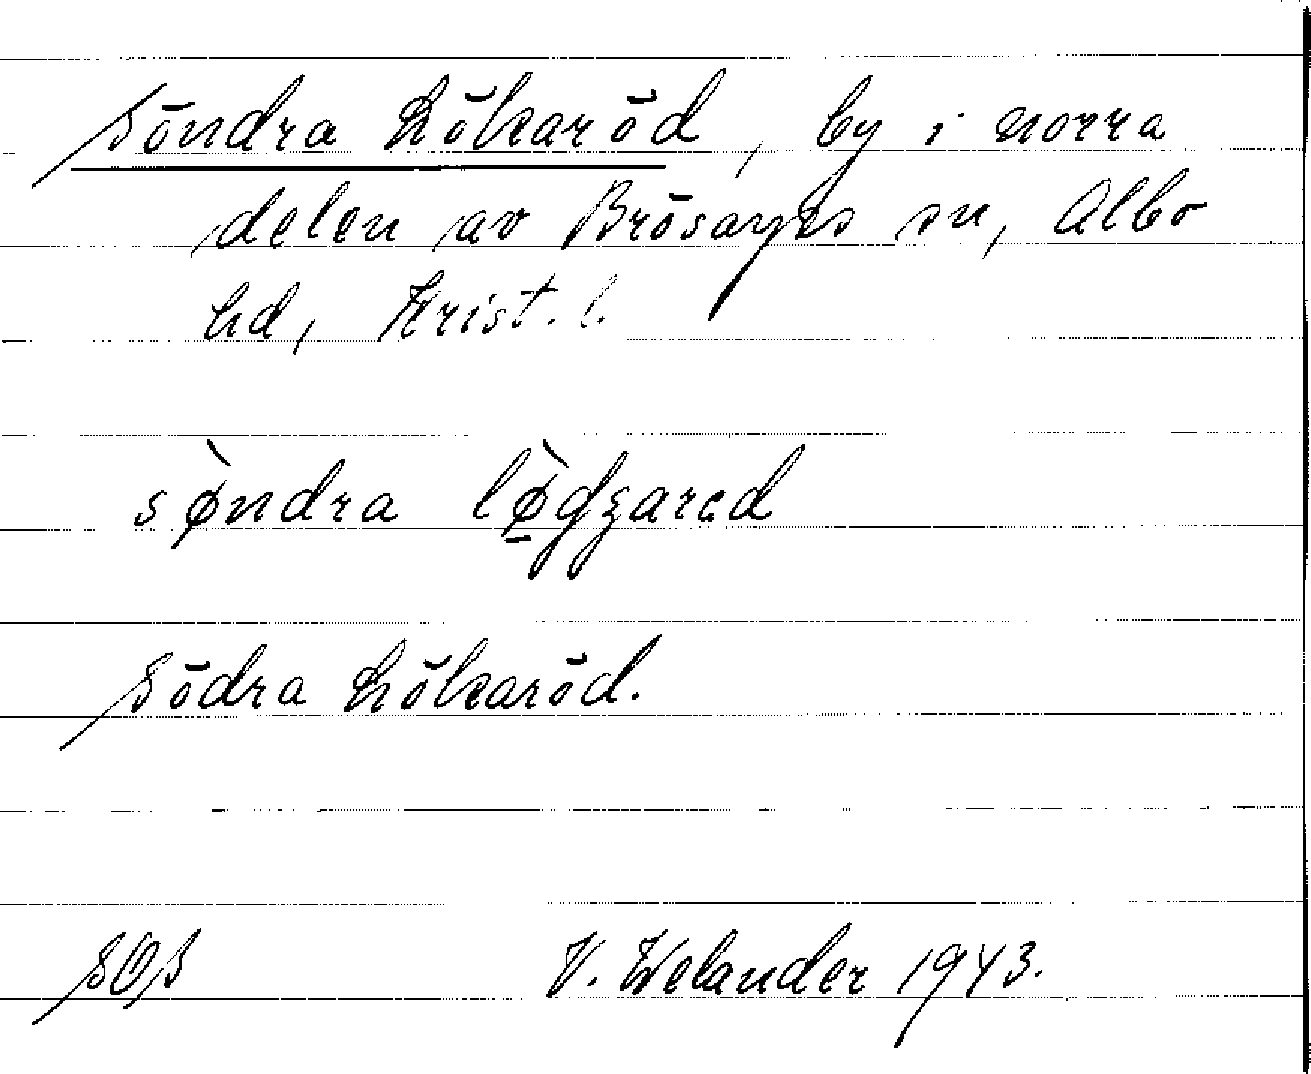 Söndra Lökaröd, by i norra
delen av Brösarps sn, Albo
hd, Krist. l.
sø̀ndra
Södra Lökaröd.
SOS V. Welander 1943.